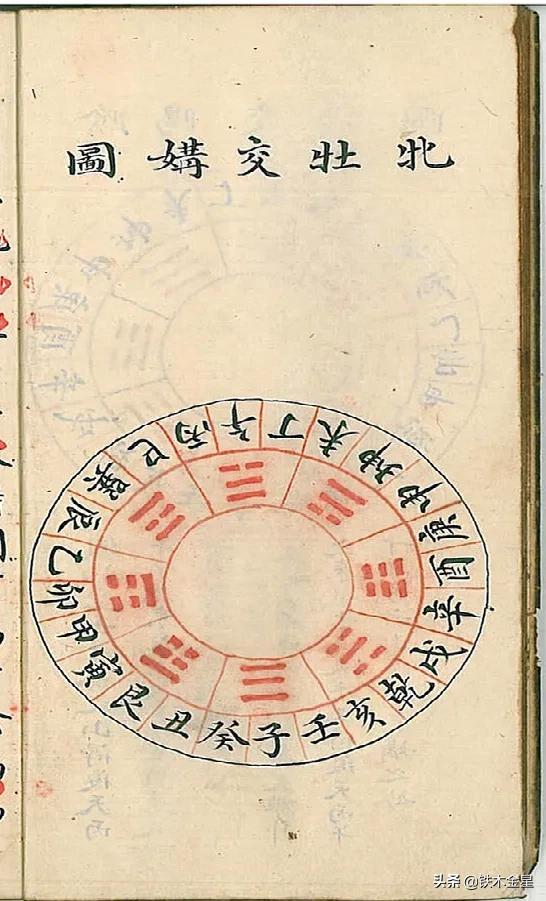 牝牡交媾圖
午丁未坤申庚酉辛戌乾亥壬子癸丑艮寅甲卯乙辰巽巳丙
头条 @铁木金星